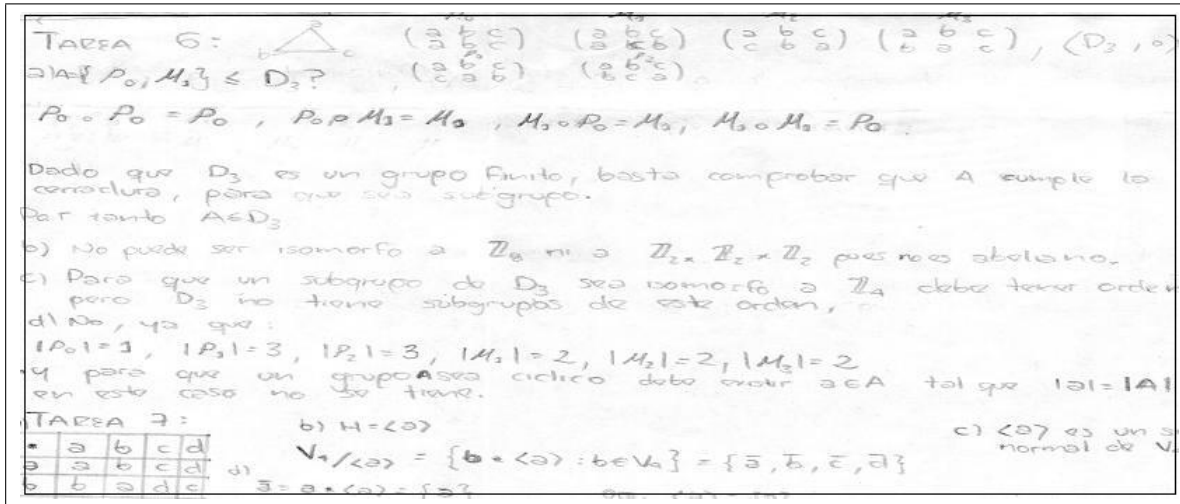 TAREA 6: a b c (a b c / a b c) (a b c / a c b) (a b c / c b a) (a b c / b a c), (D₃, ∘)
a) A={P₀, M₃} ≤ D₃? (a b c / c a b) (a b c / b c a)
P₀ ∘ P₀ = P₀ , P₀ ∘ M₃ = M₃ , M₃ ∘ P₀ = M₃, M₃ ∘ M₃ = P₀.
Dado que D₃ es un grupo finito, basta comprobar que A cumple la
cerradura, para que sea subgrupo.
Por tanto A≤D₃
b) No puede ser isomorfo a ℤ₈ ni a ℤ₂ × ℤ₂ × ℤ₂ pues no es abeliano.
c) Para que un subgrupo de D₃ sea isomorfo a ℤ₄ debe tener orden
pero D₃ no tiene subgrupos de este orden,
d) No, ya que:
|P₀|=1, |P₁|=3, |P₂|=3, |M₁|=2, |M₂|=2, |M₃|=2
y para que un grupo A sea cíclico debe existir a∈A tal que |a|=|A|
en este caso no se tiene.
TAREA 7: b) H=<a> c) <a> es un
* a b c d V₄/<a> = {b * <a> : b∈V₄} = {ā, b̄, c̄, d̄} normal de V₄
a a b c d d)
b b a d c ā = a * <a> = {a}